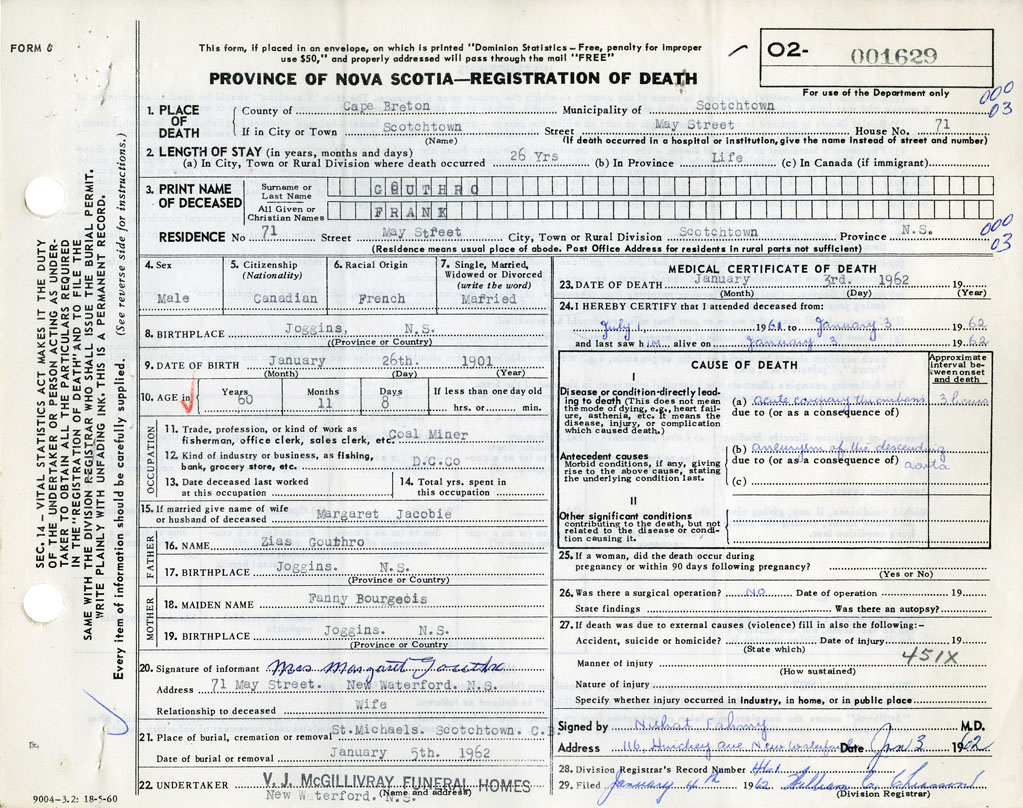 FORM 6
This form, if placed in an envelope, on which is printed "Dominion Statistics – Free, penalty for improper
use $50," and properly addressed will pass through the mail "FREE"
O2- 001629
For use of the Department only
PROVINCE OF NOVA SCOTIA—REGISTRATION OF DEATH
000
03
1. PLACE OF DEATH
County of Cape Breton Municipality of Scotchtown
If in City or Town Scotchtown Street May Street House No. 71
(Name) (If death occurred in a hospital or institution, give the name instead of street and number)
2. LENGTH OF STAY (in years, months and days)
(a) In City, Town or Rural Division where death occurred 26 Yrs (b) In Province Life (c) In Canada (if immigrant)
3. PRINT NAME OF DECEASED
Surname or Last Name GOUTHRO
All Given or Christian Names FRANK
RESIDENCE No 71 Street May Street City, Town or Rural Division Scotchtown Province N.S.
(Residence means usual place of abode. Post Office Address for residents in rural parts not sufficient)
000
03
4. Sex
Male
5. Citizenship (Nationality)
Canadian
6. Racial Origin
French
7. Single, Married, Widowed or Divorced (write the word)
Married
8. BIRTHPLACE Joggins, N.S.
(Province or Country)
9. DATE OF BIRTH January 26th. 1901
(Month) (Day) (Year)
10. AGE in Years 60 Months 11 Days 8 If less than one day old hrs. or min.
OCCUPATION
11. Trade, profession, or kind of work as
fisherman, office clerk, sales clerk, etc. Coal Miner
12. Kind of industry or business, as fishing,
bank, grocery store, etc. D.C.Co
13. Date deceased last worked at this occupation
14. Total yrs. spent in this occupation
15. If married give name of wife
or husband of deceased Margaret Jacobie
FATHER
16. NAME Zias Gouthro
17. BIRTHPLACE Joggins. N.S.
(Province or Country)
MOTHER
18. MAIDEN NAME Fanny Bourgeois
19. BIRTHPLACE Joggins. N.S.
(Province or Country)
20. Signature of informant Mrs Margaret Gouthro
Address 71 May Street. New Waterford. N.S.
Relationship to deceased Wife
21. Place of burial, cremation or removal St.Michaels. Scotchtown. C.B.
Date of burial or removal January 5th. 1962
22. UNDERTAKER V. J. McGILLIVRAY FUNERAL HOMES
New Waterford. N.S. (Name and address)
MEDICAL CERTIFICATE OF DEATH
23. DATE OF DEATH January 3rd. 1962 19
(Month) (Day) (Year)
24. I HEREBY CERTIFY that I attended deceased from:
July 1, 1961 to January 3 1962
and last saw him alive on January 3 1962
CAUSE OF DEATH
Approximate interval between onset and death
I
Disease or condition directly leading to death (This does not mean the mode of dying, e.g., heart failure, asthenia, etc. It means the disease, injury, or complication which caused death.)
(a) acute coronary thrombosis 3 hours
due to (or as a consequence of)
Antecedent causes
Morbid conditions, if any, giving rise to the above cause, stating the underlying condition last.
(b) aneurysm of the descending
due to (or as a consequence of) aorta
(c)
II
Other significant conditions
contributing to the death, but not related to the disease or condition causing it.
25. If a woman, did the death occur during
pregnancy or within 90 days following pregnancy?
(Yes or No)
26. Was there a surgical operation? No Date of operation 19
State findings Was there an autopsy?
27. If death was due to external causes (violence) fill in also the following:–
Accident, suicide or homicide? Date of injury 19
(State which)
451X
Manner of injury
(How sustained)
Nature of injury
Specify whether injury occurred in industry, in home, or in public place
Signed by Nishat Fahmy M.D.
Address 116, Hinchey Ave New Waterford Date Jan 3 1962
28. Division Registrar's Record Number
29. Filed January 4th 1962 William
(Division Registrar)
SEC. 14 – VITAL STATISTICS ACT MAKES IT THE DUTY
OF THE UNDERTAKER OR PERSON ACTING AS UNDER-
TAKER TO OBTAIN ALL THE PARTICULARS REQUIRED
IN THE "REGISTRATION OF DEATH" AND TO FILE THE
SAME WITH THE DIVISION REGISTRAR WHO SHALL ISSUE THE BURIAL PERMIT.
WRITE PLAINLY WITH UNFADING INK. THIS IS A PERMANENT RECORD.
Every item of information should be carefully supplied. (See reverse side for instructions.)
9004–3.2: 18-5-60